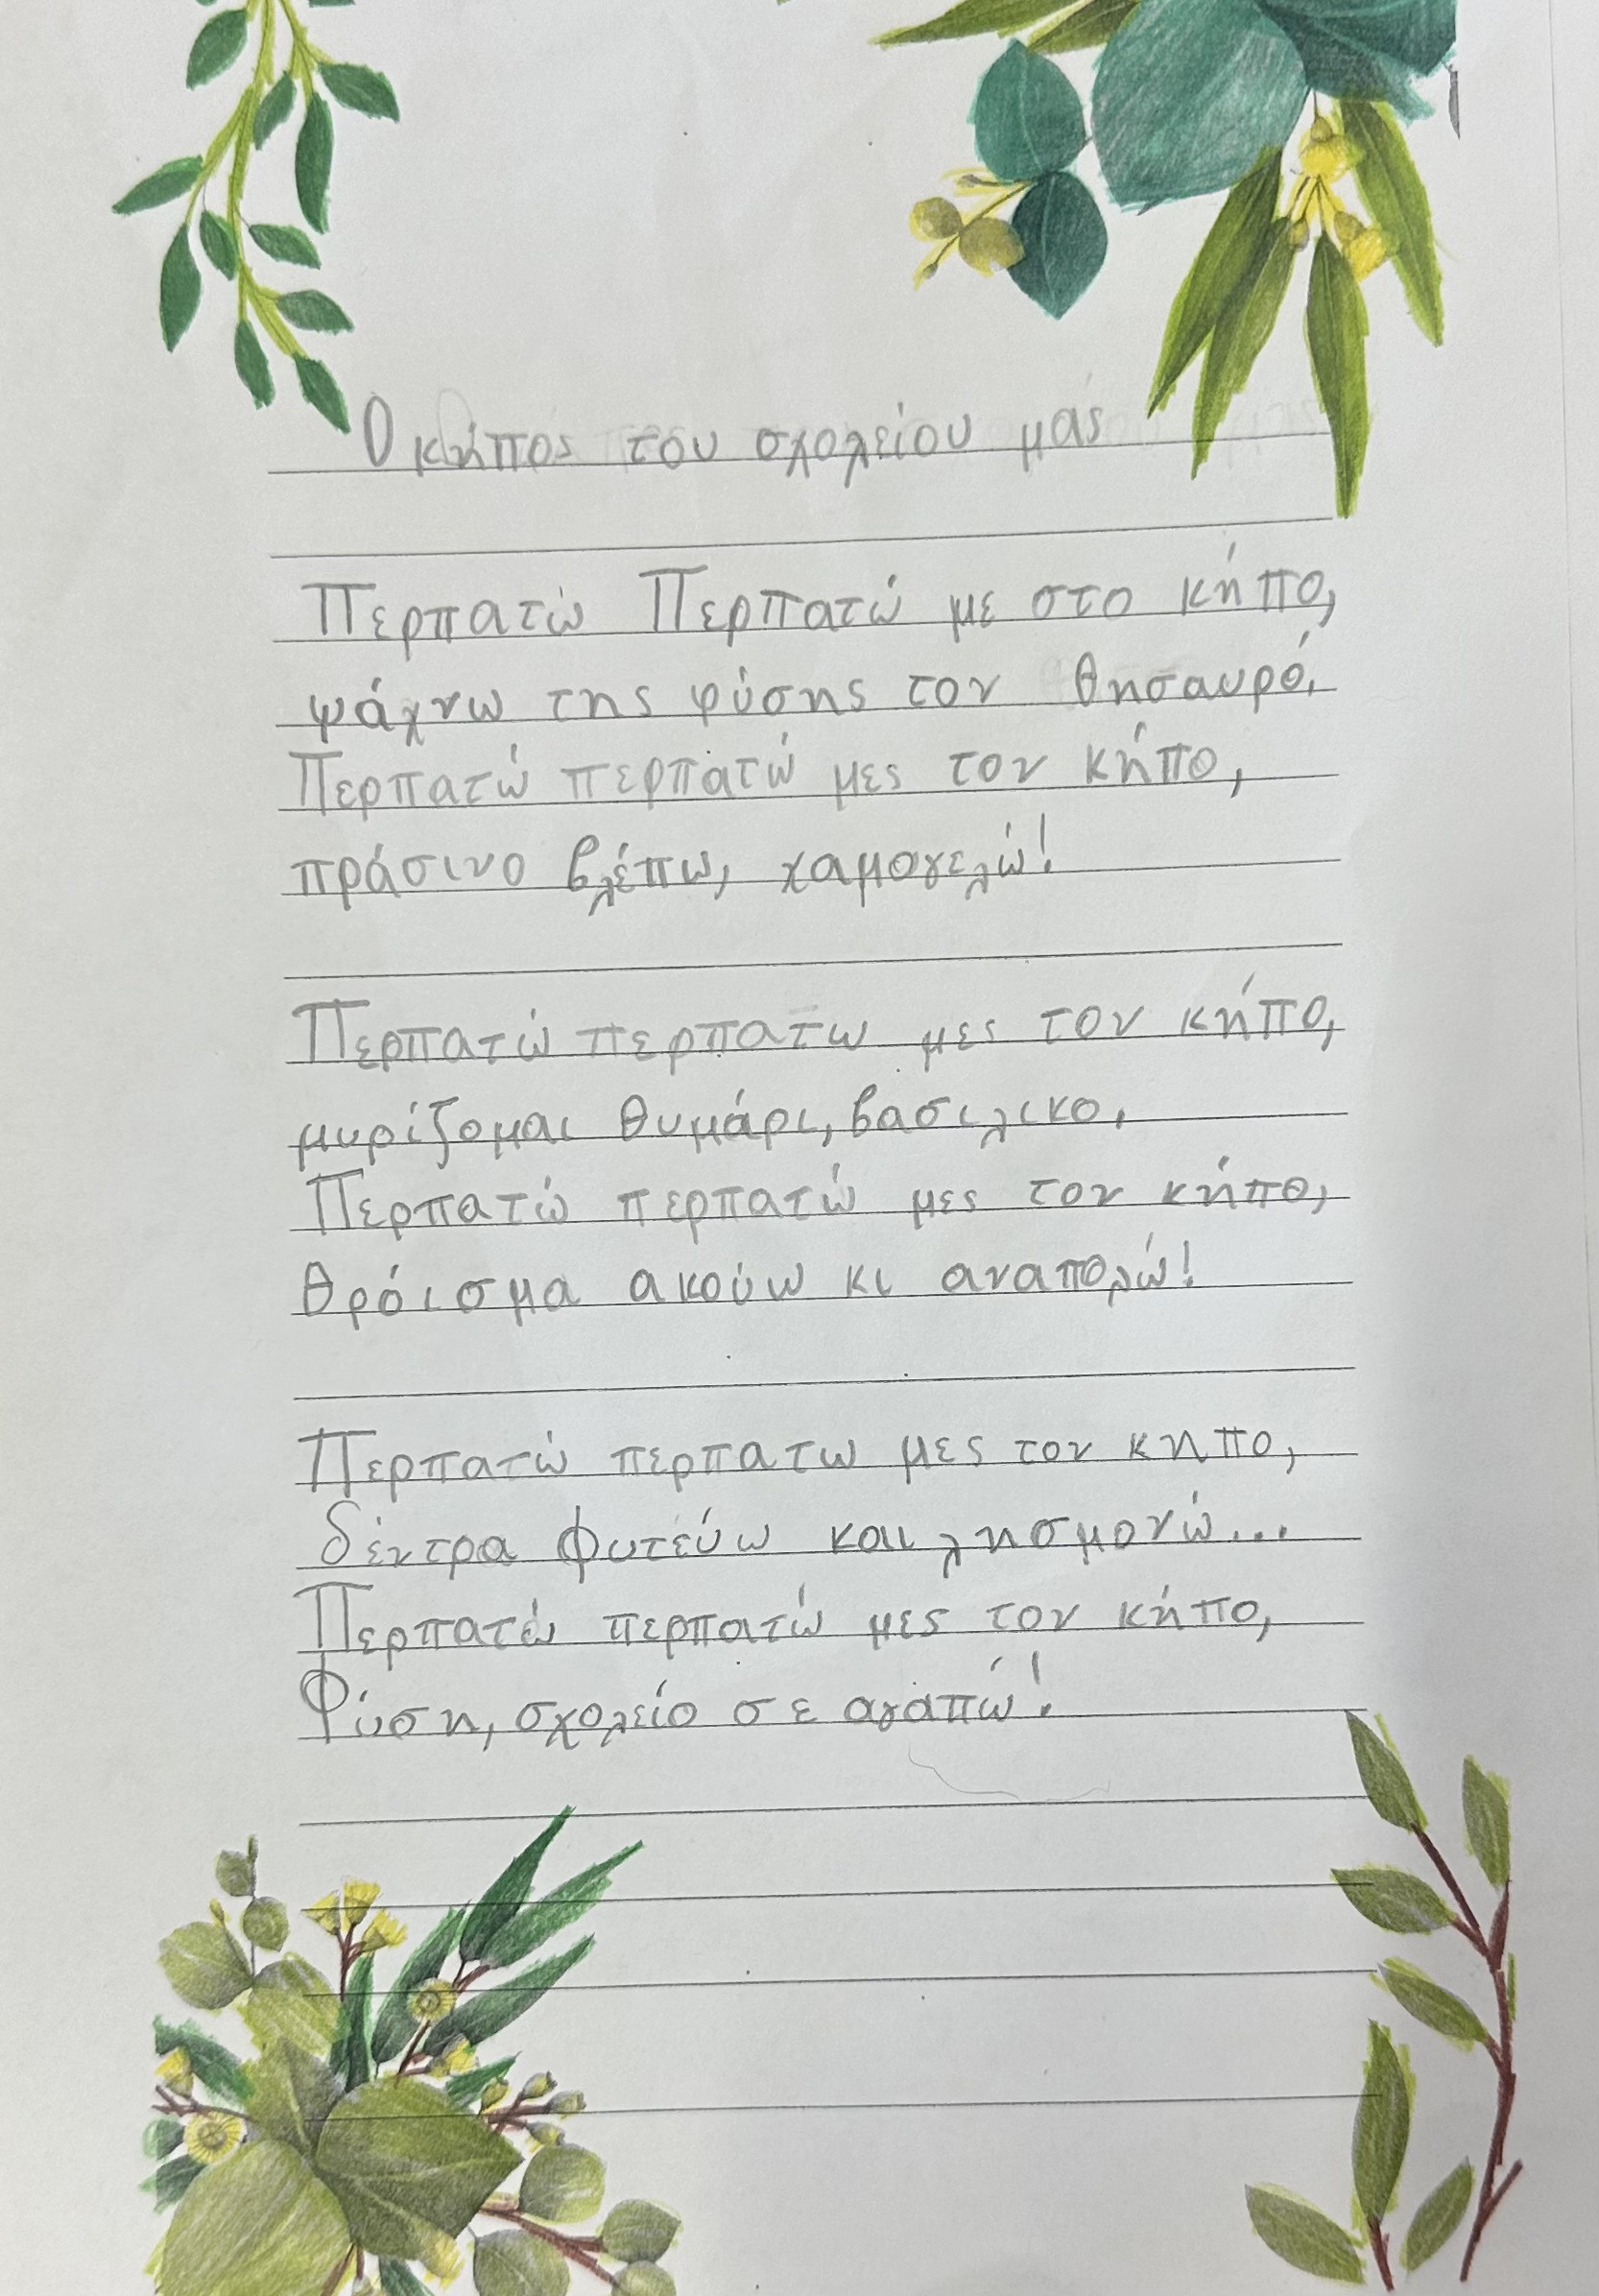 Ο κήπος του σχολείου μας
Περπατώ Περπατώ με στο κήπο,
ψάχνω της φύσης τον θησαυρό,
Περπατώ περπατώ μες τον κήπο,
πράσινο βλέπω, χαμογελώ!
Περπατώ περπατω μες τον κήπο,
μυρίζομαι θυμάρι, βασιλικο,
Περπατώ περπατώ μες τον κήπο,
θρόισμα ακούω κι αναπολώ!
Περπατώ περπατω μες τον κηπο,
δέντρα φυτεύω και λησμονώ...
Περπατώ περπατώ μες τον κήπο,
Φύση, σχολείο σε αγαπώ!